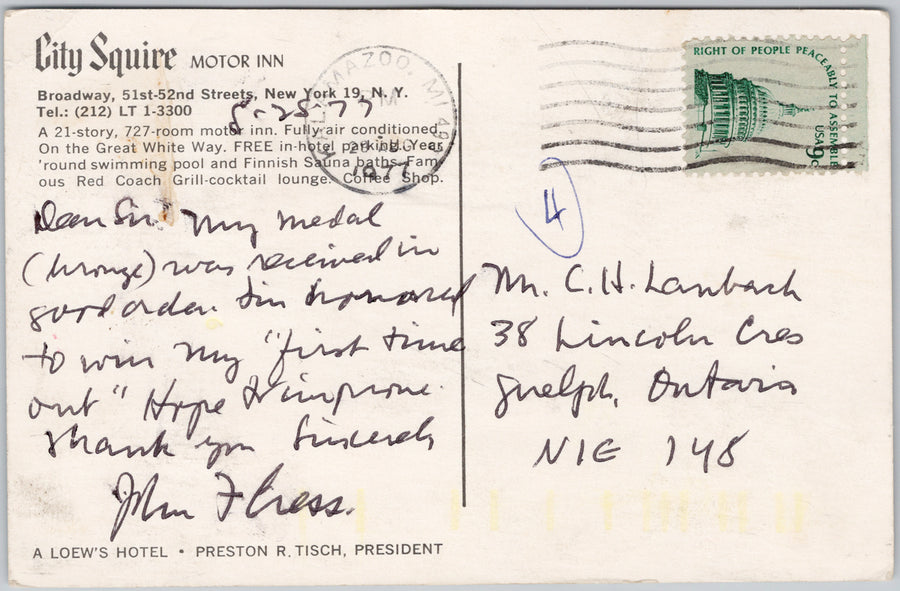 City Squire MOTOR INN
Broadway, 51st-52nd Streets, New York 19, N. Y.
Tel.: (212) LT 1-3300
8-25-77
A 21-story, 727-room motor inn. Fully air conditioned.
On the Great White Way. FREE in-hotel parking. Year
'round swimming pool and Finnish Sauna baths. Fam-
ous Red Coach Grill-cocktail lounge. Coffee Shop.
KALAMAZOO, MI 490
PM
1977
RIGHT OF PEOPLE PEACEABLY TO ASSEMBLE
USA 9c
4
Dear Sir. My medal
(bronze) was received in
good order. I'm honored
to win my "first time
out" Hope to improve.
Thank you Sincerely
John F
Mr. C. H. Lambach
38 Lincoln Cres
Guelph, Ontario
N1E 1Y8
A LOEW'S HOTEL • PRESTON R. TISCH, PRESIDENT